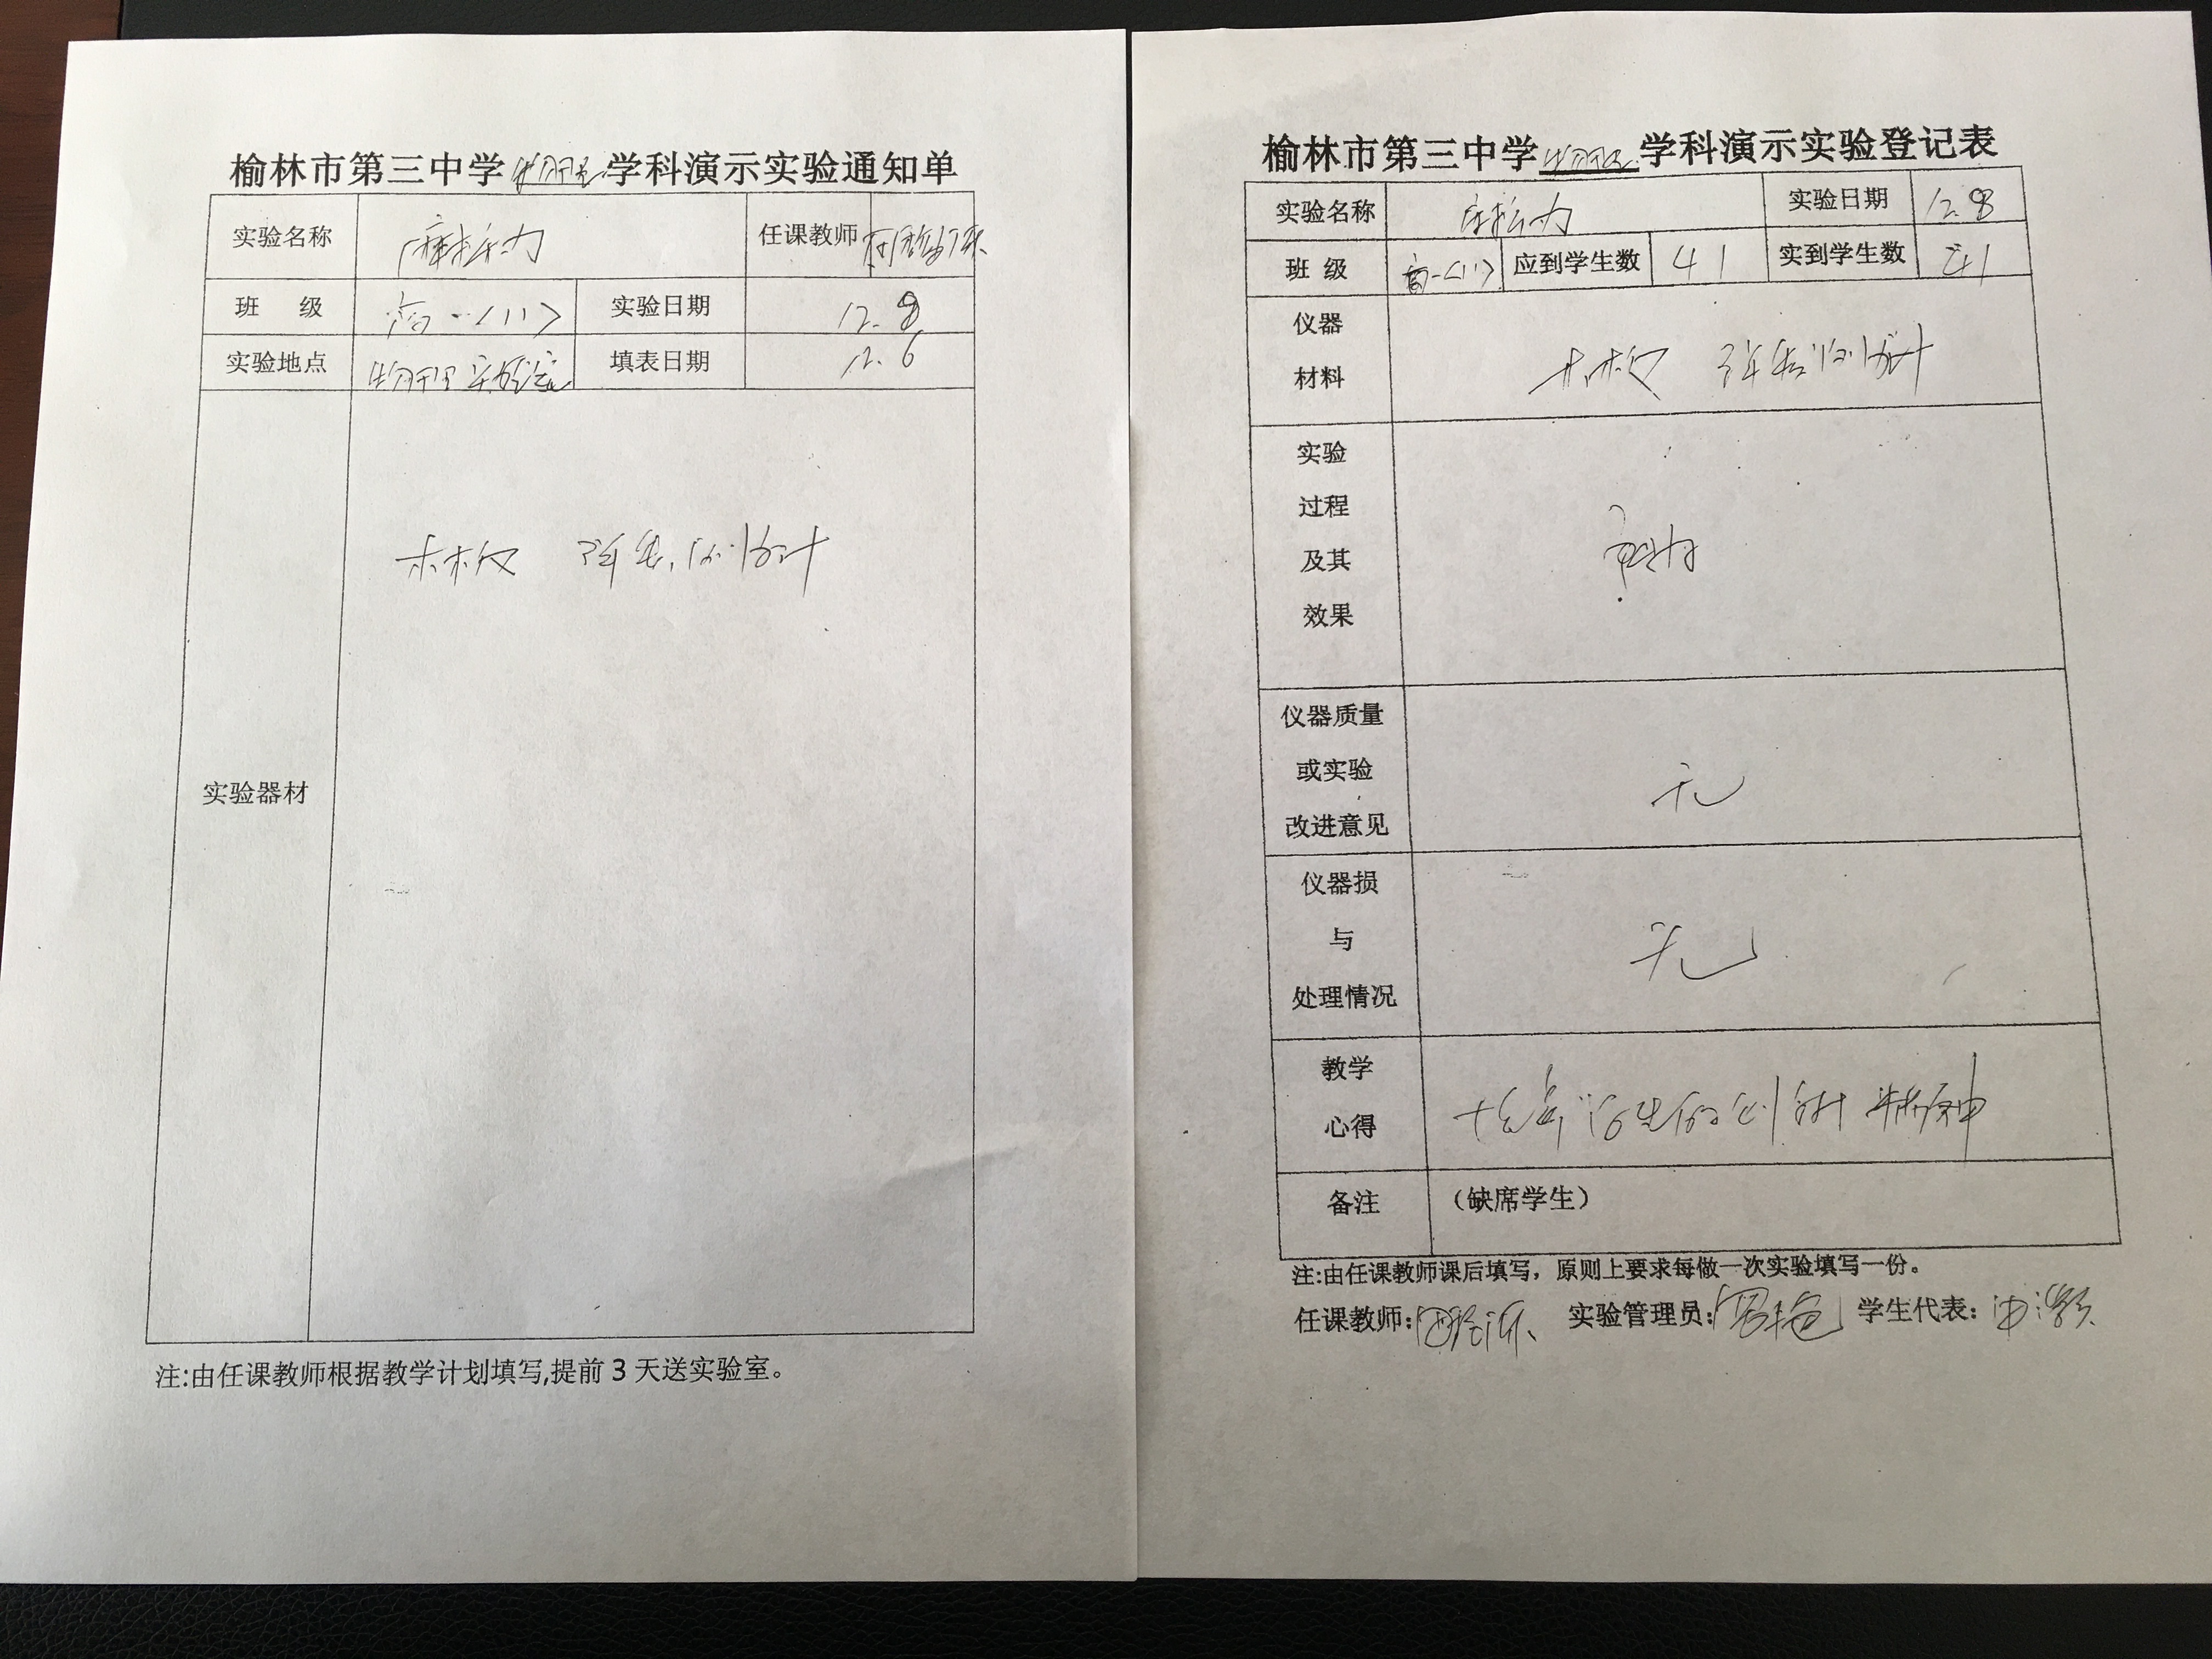 榆林市第三中学物理学科演示实验通知单
实验名称 摩擦力 任课教师
班 级 高一(11) 实验日期 12.8
实验地点 物理实验室 填表日期 12.6
实验器材 木板 弹簧测力计
注:由任课教师根据教学计划填写,提前3天送实验室。
榆林市第三中学物理学科演示实验登记表
实验名称 摩擦力 实验日期 12.8
班 级 高一(11) 应到学生数 41 实到学生数 41
仪器
材料
木板 弹簧测力计
实验
过程
及其
效果
仪器质量
或实验
改进意见
无
仪器损
与
处理情况
无
教学
心得
培养学生的创新精神
备注 （缺席学生）
注:由任课教师课后填写，原则上要求每做一次实验填写一份。
任课教师: 实验管理员: 学生代表: